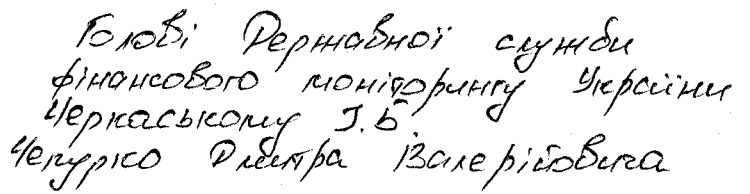 Голові Державної служби
фінансового моніторингу України
Черкаському І.Б.
Чепурко Дмитра Валерійовича